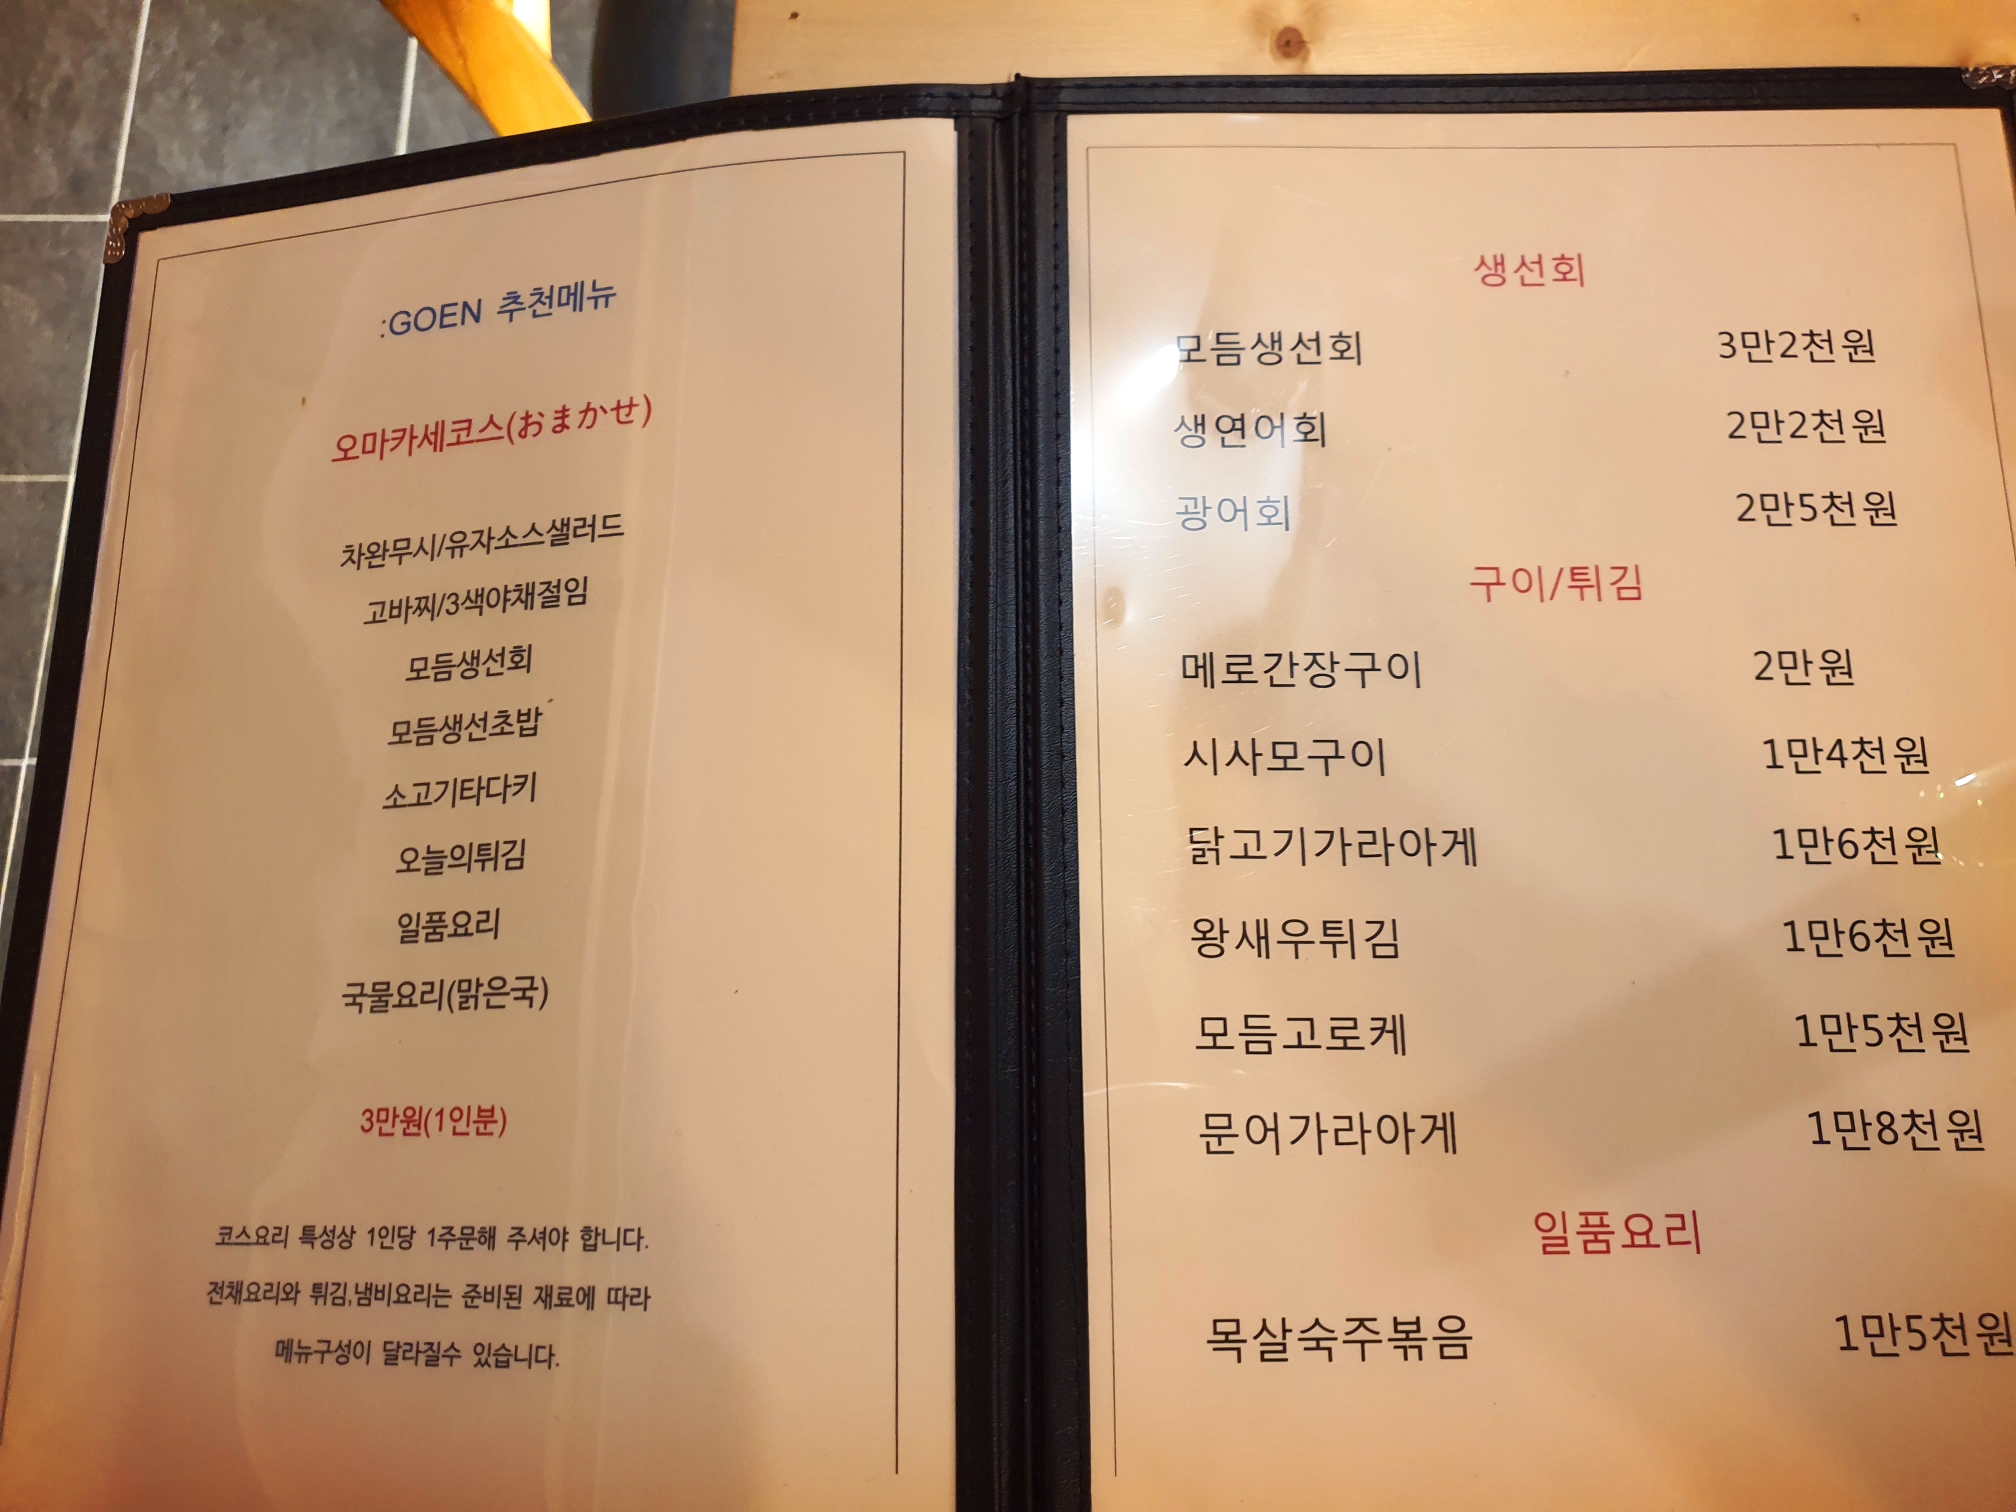 :GOEN 추천메뉴
오마카세코스(おまかせ)
차완무시/유자소스샐러드
고바찌/3색야채절임
모듬생선회
모듬생선초밥
소고기타다키
오늘의튀김
일품요리
국물요리(맑은국)
3만원(1인분)
코스요리 특성상 1인당 1주문해 주셔야 합니다.
전채요리와 튀김,냄비요리는 준비된 재료에 따라
메뉴구성이 달라질수 있습니다.
생선회
모듬생선회 3만2천원
생연어회 2만2천원
광어회 2만5천원
구이/튀김
메로간장구이 2만원
시사모구이 1만4천원
닭고기가라아게 1만6천원
왕새우튀김 1만6천원
모듬고로케 1만5천원
문어가라아게 1만8천원
일품요리
목살숙주볶음 1만5천원